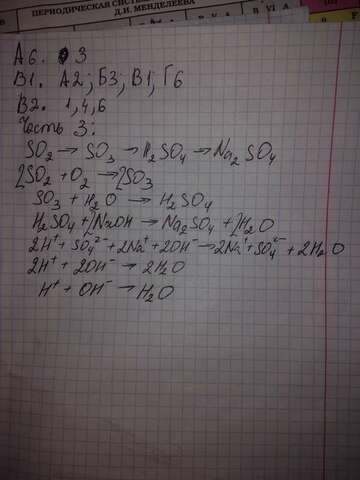 ПЕРИОДИЧЕСКАЯ СИСТЕМА
Д.И. МЕНДЕЛЕЕВА
А6. 3
В1. А2; Б3; В1; Г6
В2. 1,4,6
Часть 3:
SO₂ → SO₃ → H₂SO₄ → Na₂SO₄
2SO₂ + O₂ → 2SO₃
SO₃ + H₂O → H₂SO₄
H₂SO₄ + 2NaOH → Na₂SO₄ + 2H₂O
2H⁺ + SO₄²⁻ + 2Na⁺ + 2OH⁻ → 2Na⁺ + SO₄²⁻ + 2H₂O
2H⁺ + 2OH⁻ → 2H₂O
H⁺ + OH⁻ → H₂O